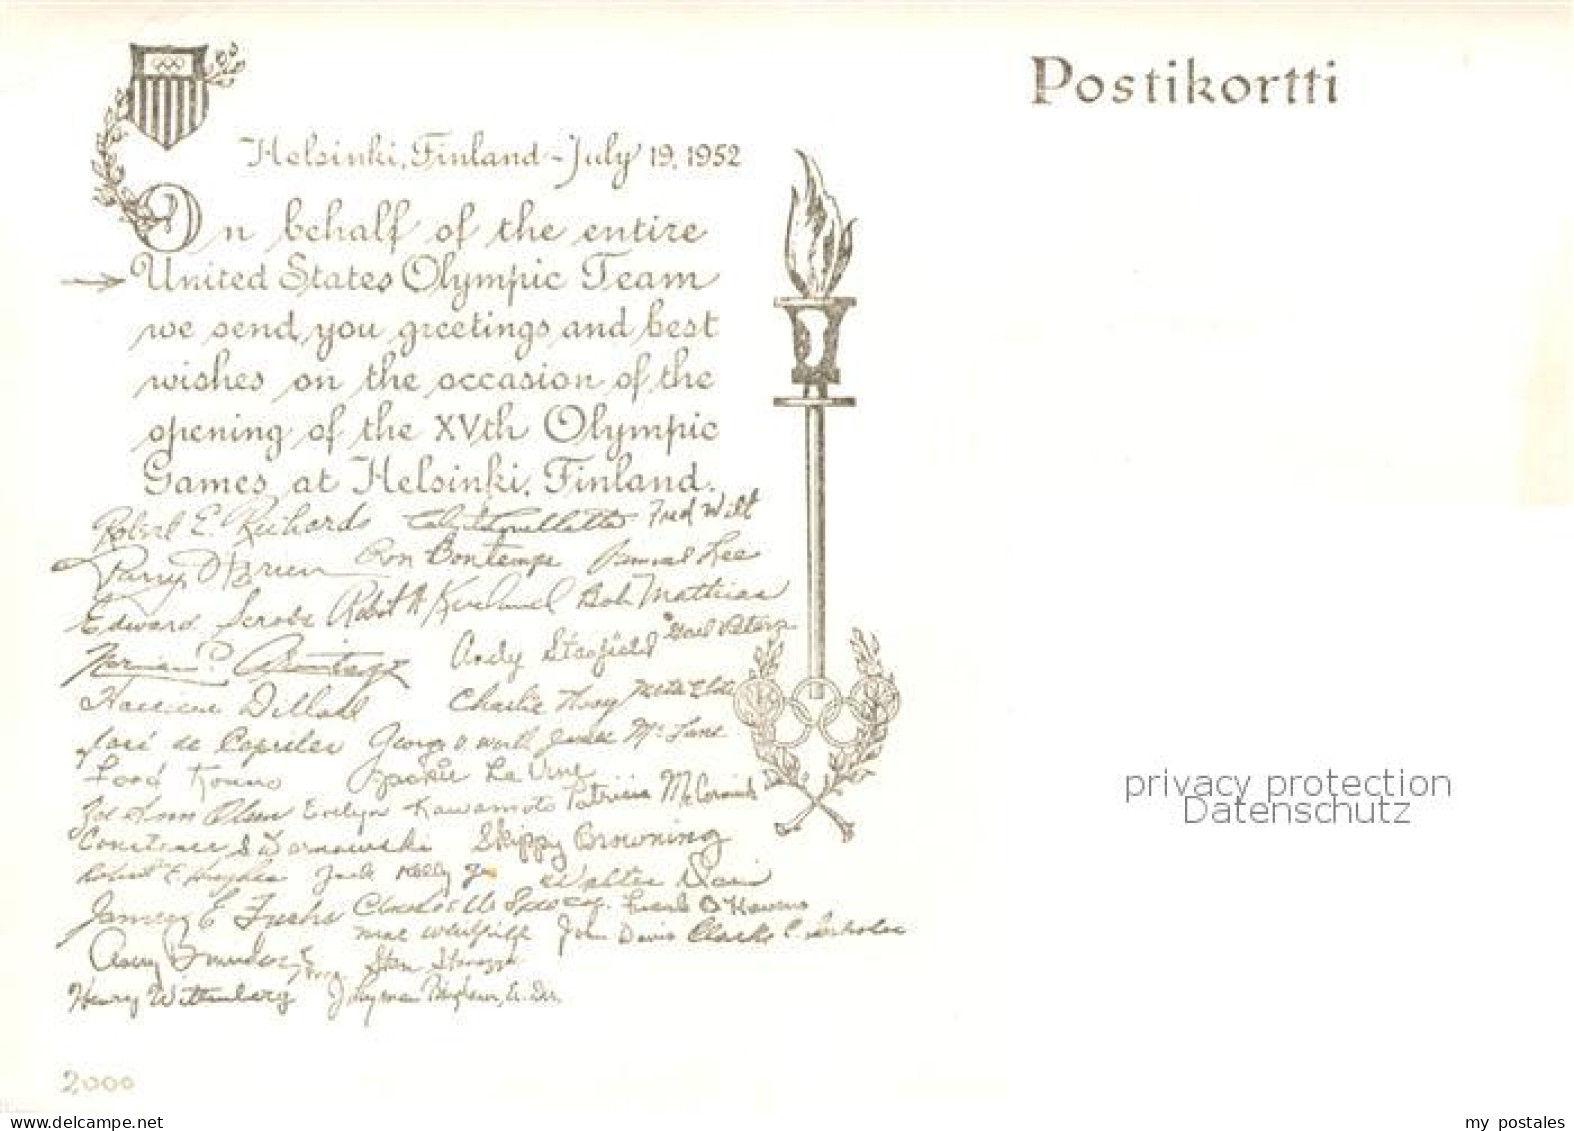 Postikortti
Helsinki, Finland - July 19, 1952
On behalf of the entire
United States Olympic Team
we send you greetings and best
wishes on the occasion of the
opening of the XVth Olympic
Games at Helsinki, Finland.
Robert E. Richards Fred Wilt
Parry O'Brien Ron Bontemps Samuel Lee
Edward Scrobe Bob Mathias
Norman C. Armitage Andy Stanfield Gail Peters
Harrison Dillard Charlie Hoag
José de Capriles George D. Worth June McLane
Ford Konno Jackie La Vine
Jo Ann Olsen Evelyn Kawamoto Patricia McCormick
Constance Skippy Browning
Robert E. Hughes Jack Kelly Jr. Walter Davis
James E. Fuchs Frank
Mal Whitfield John Davis Clarke C. Scholes
Avery Brundage Stan Stanczyk
Henry Wittenberg J. Lyman Bingham, Ex. Dir.
2,000
privacy protection
Datenschutz
www.delcampe.net
my_postales